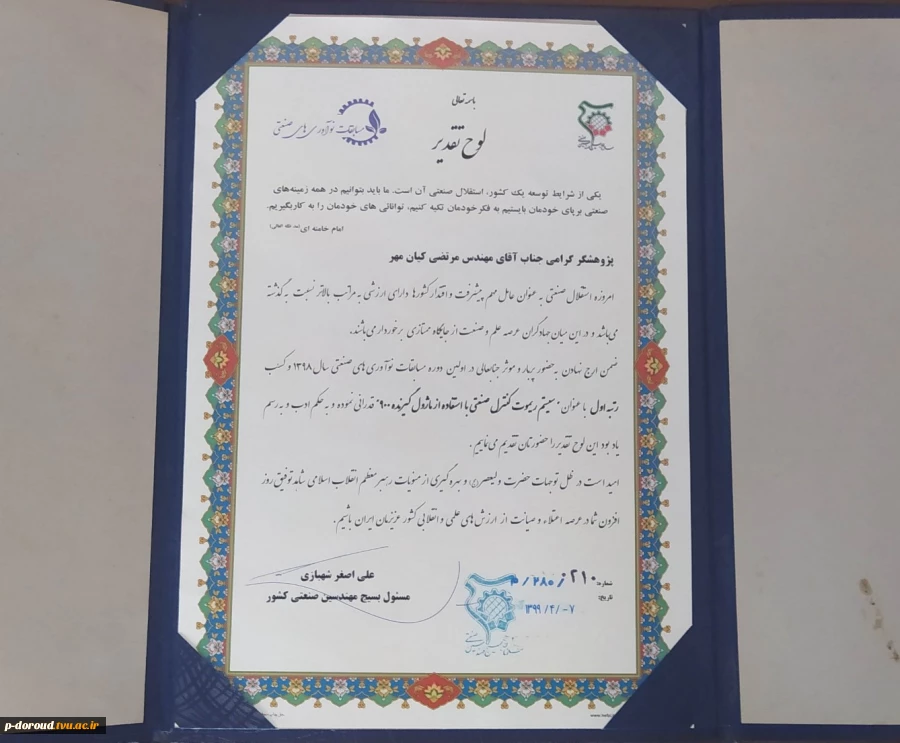 باسمه تعالی
لوح تقدیر
مسابقات نوآوری های صنعتی
یکی از شرایط توسعه یک کشور، استقلال صنعتی آن است. ما باید بتوانیم در همه زمینه‌های
صنعتی برپای خودمان بایستیم به فکر خودمان تکیه کنیم، توانائی های خودمان را به کارگیریم.
امام خامنه ای (مد ظله العالی)
پژوهشگر گرامی جناب آقای مهندس مرتضی کیان مهر
امروزه استقلال صنعتی به عنوان عامل مهم پیشرفت و اقتدار کشورها دارای ارزشی به مراتب بالاتر نسبت به گذشته
می‌باشد و در این میان جهادگران عرصه علم و صنعت از جایگاه ممتازی برخوردار می‌باشند.
ضمن ارج نهادن به حضور پربار و موثر جنابعالی در اولین دوره مسابقات نوآوری های صنعتی سال ۱۳۹۸ و کسب
رتبه اول با عنوان "سیستم ریموت کنترل صنعتی با استفاده از ماژول گیرنده ۹۰۰" قدرانی نموده و به حکم ادب و به رسم
یاد بود این لوح تقدیر را حضورتان تقدیم می‌نماییم.
امید است در ظل توجهات حضرت ولیعصر(عج) و بهره گیری از منویات رهبر معظم انقلاب اسلامی شاهد توفیق روز
افزون شما در عرصه اعتلاء و صیانت از ارزش های علمی و انقلابی کشور عزیزمان ایران باشیم.
علی اصغر شهبازی
مسئول بسیج مهندسین صنعتی کشور
شماره:
تاریخ: ۱۳۹۹/۴/۰۷
p-doroud.tvu.ac.ir